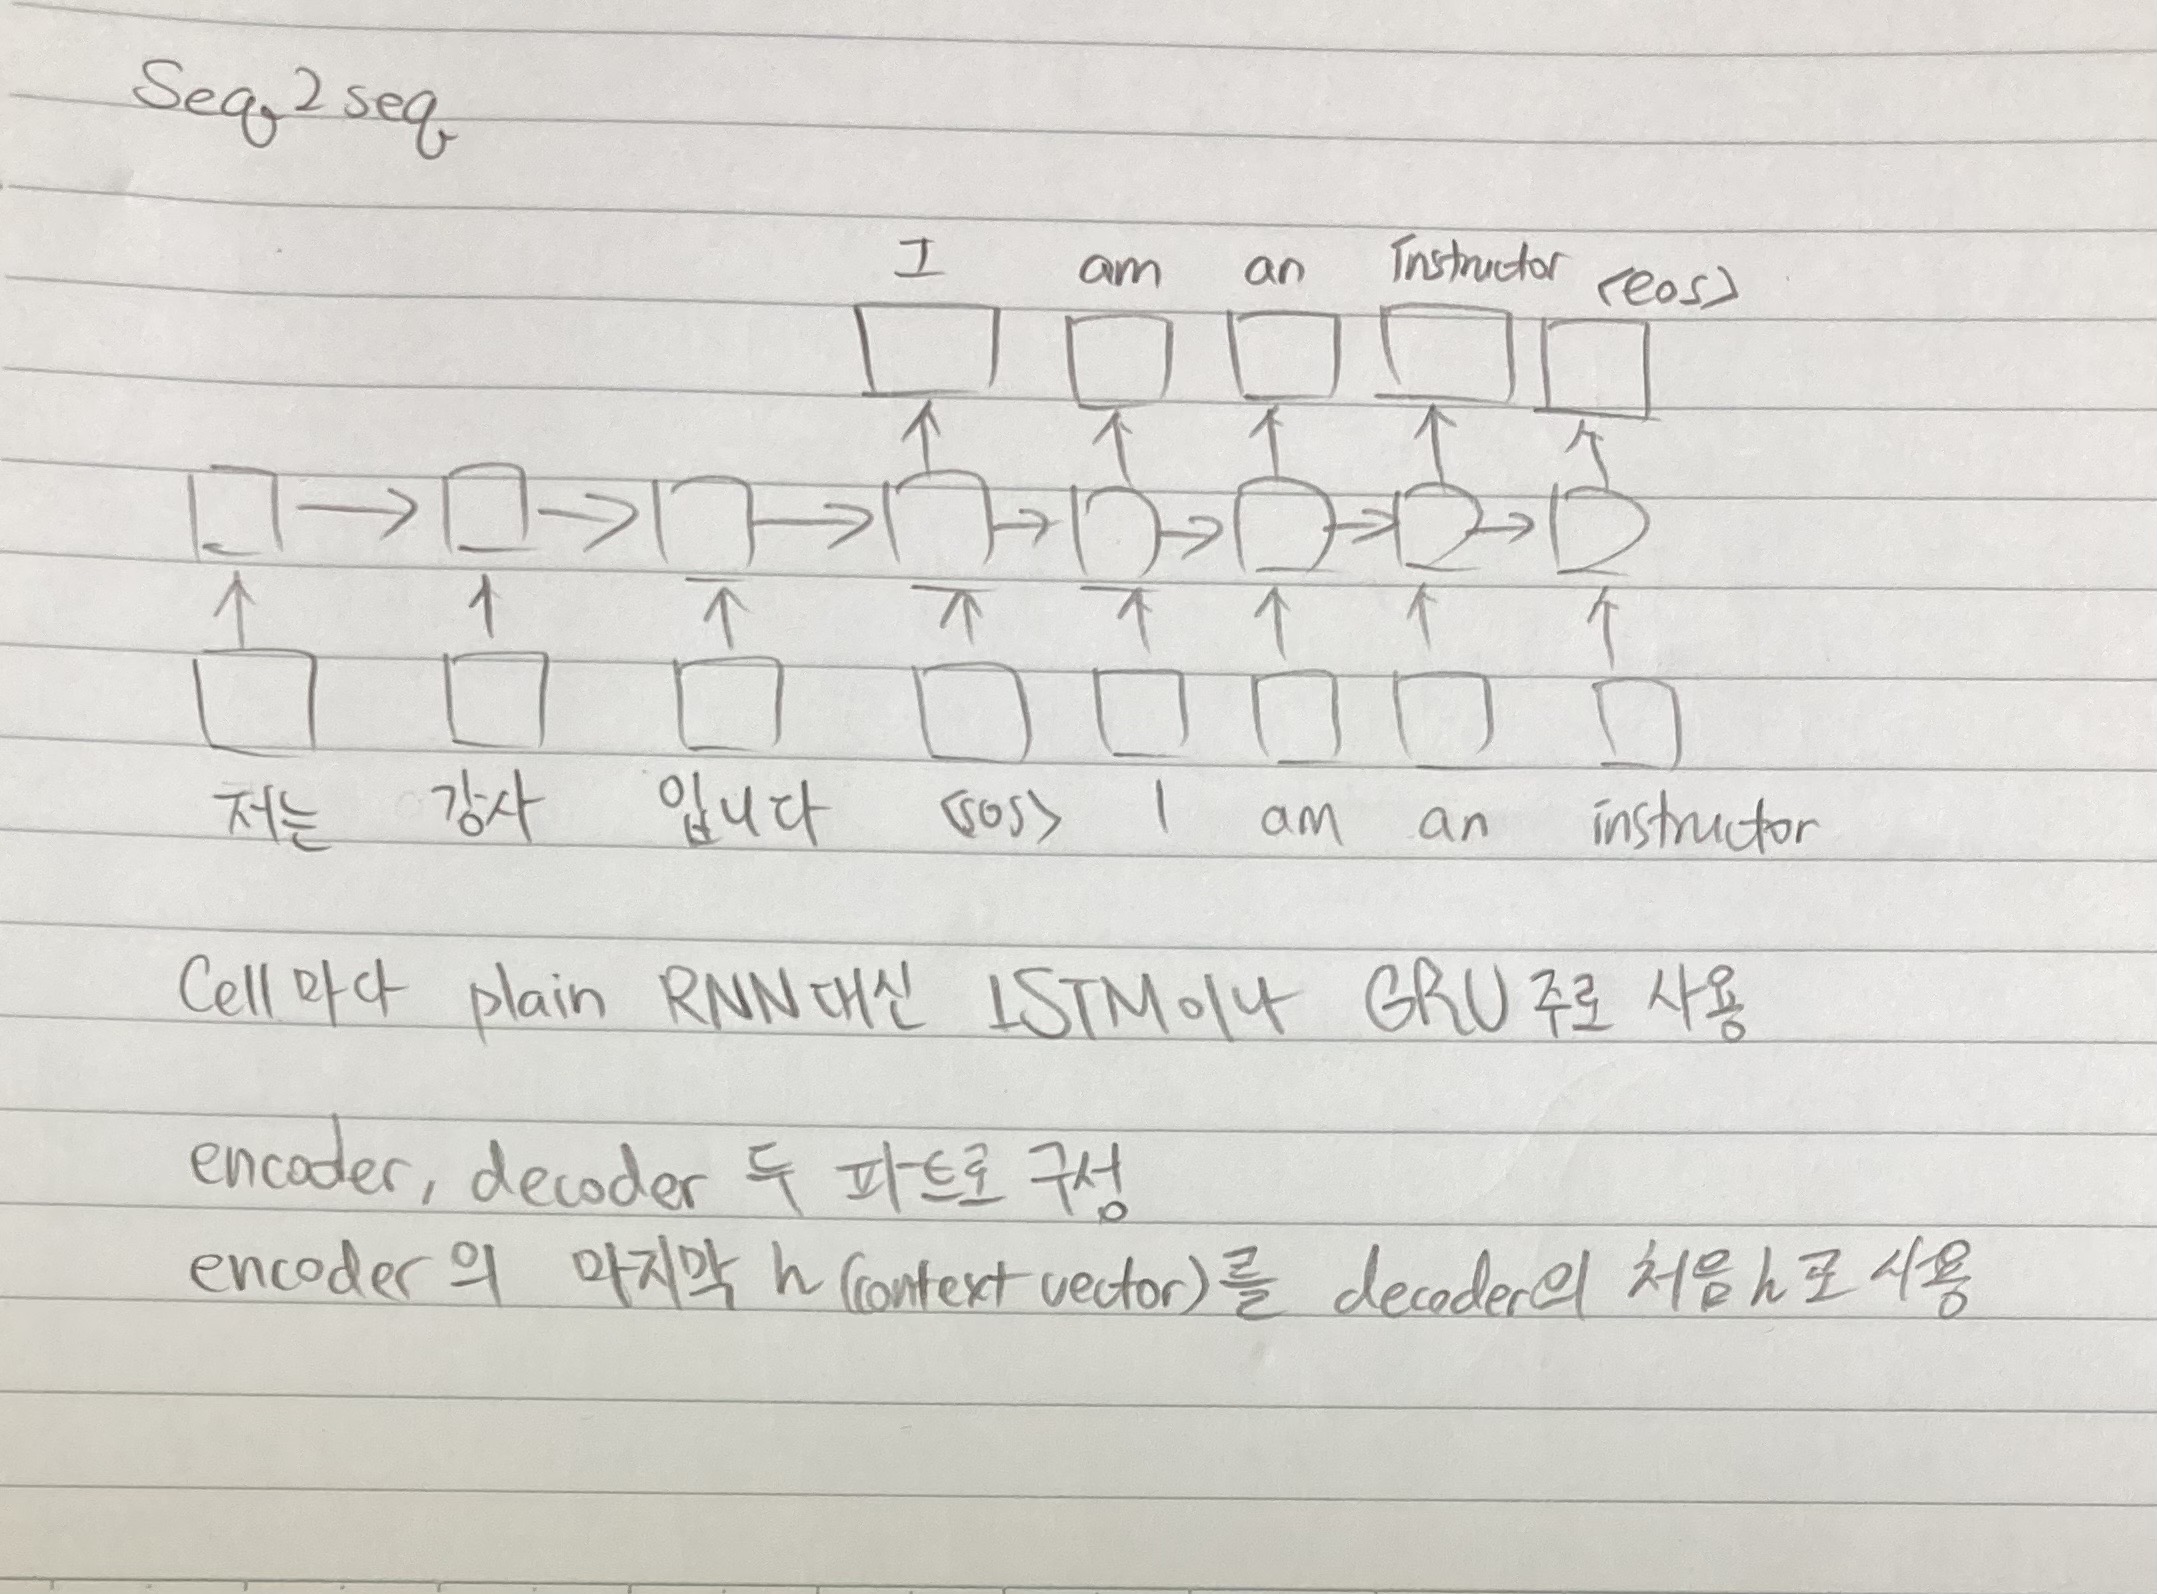 Seq2seq
I am an Instructor <eos>
저는 강사 입니다 <sos> I am an instructor
Cell마다 plain RNN대신 LSTM이나 GRU주로 사용
encoder, decoder 두 파트로 구성
encoder의 마지막 h (context vector)를 decoder의 처음 h로 사용